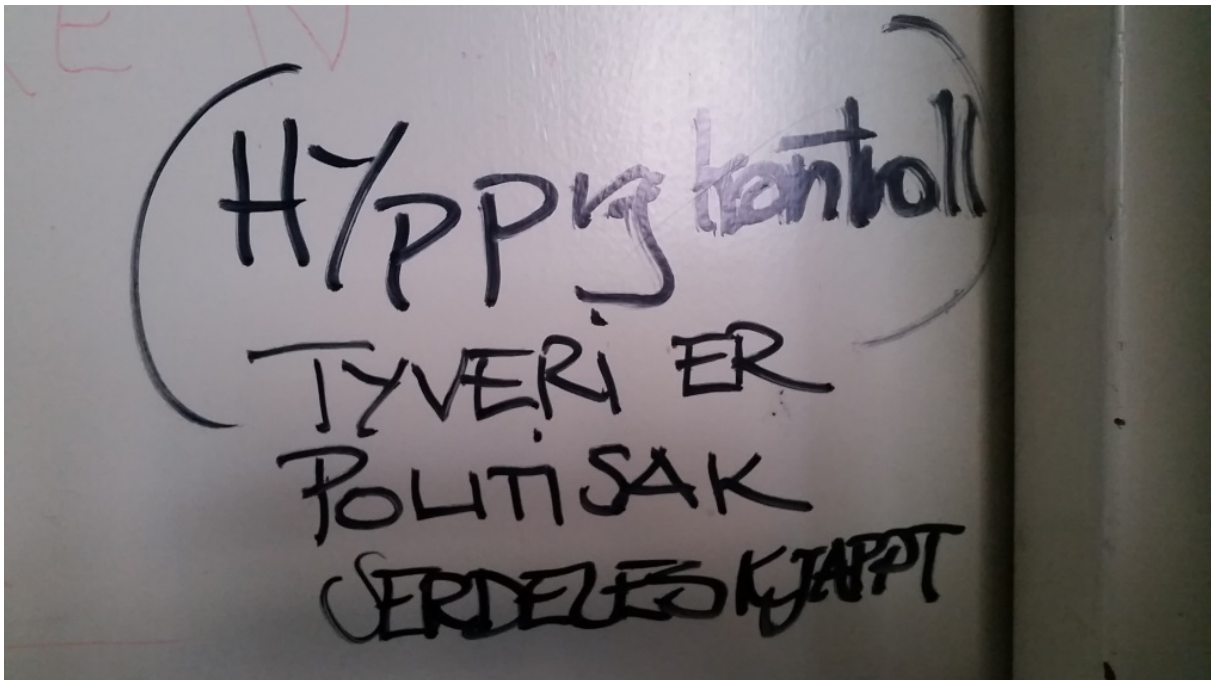 EN
(HYppig kontroll)
TYVERi ER
POLITISAK
SERDELES KJAPPT